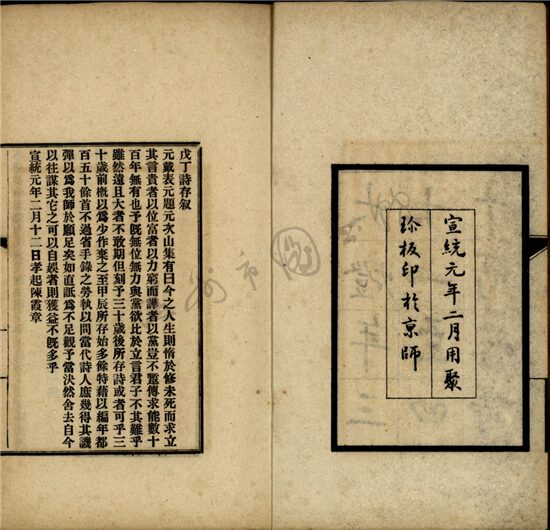 宣統元年二月用聚
珍板印於京師
戊丁詩存叙
元戴表元題元次山集有曰今之人生則惰於修未死而求立
其言貴者以位富者以力窮而譁者以黨豈不蹔傳求能數十
百年無有也予旣無位無力與黨欲比於立言君子不其難乎
雖然遠且大者不敢期但刻予三十歲後所存詩或者可乎三
十歲前概以爲少作棄之至甲辰所存始多餘特藉以編年都
百五十餘首不過省手錄之勞執以問當代詩人庶幾得其譏
彈以爲我師於願足矣如直詆爲不足觀予當決然舍去自今
以往謀其它之可以自娛者則獲益不旣多乎
宣統元年二月十二日孝起陳霞章